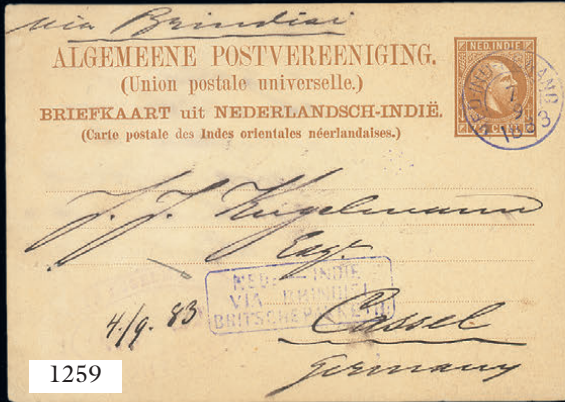 via Brindisi
ALGEMEENE POSTVEREENIGING.
(Union postale universelle.)
BRIEFKAART uit NEDERLANDSCH-INDIË.
(Carte postale des Indes orientales néerlandaises.)
NED. INDIE
J. J. Kugelmann
Esqr.
NED. INDIE
VIA BRINDISI
BRITSCHE PAKKET
4/9. 83
Cassel
Germany
1259